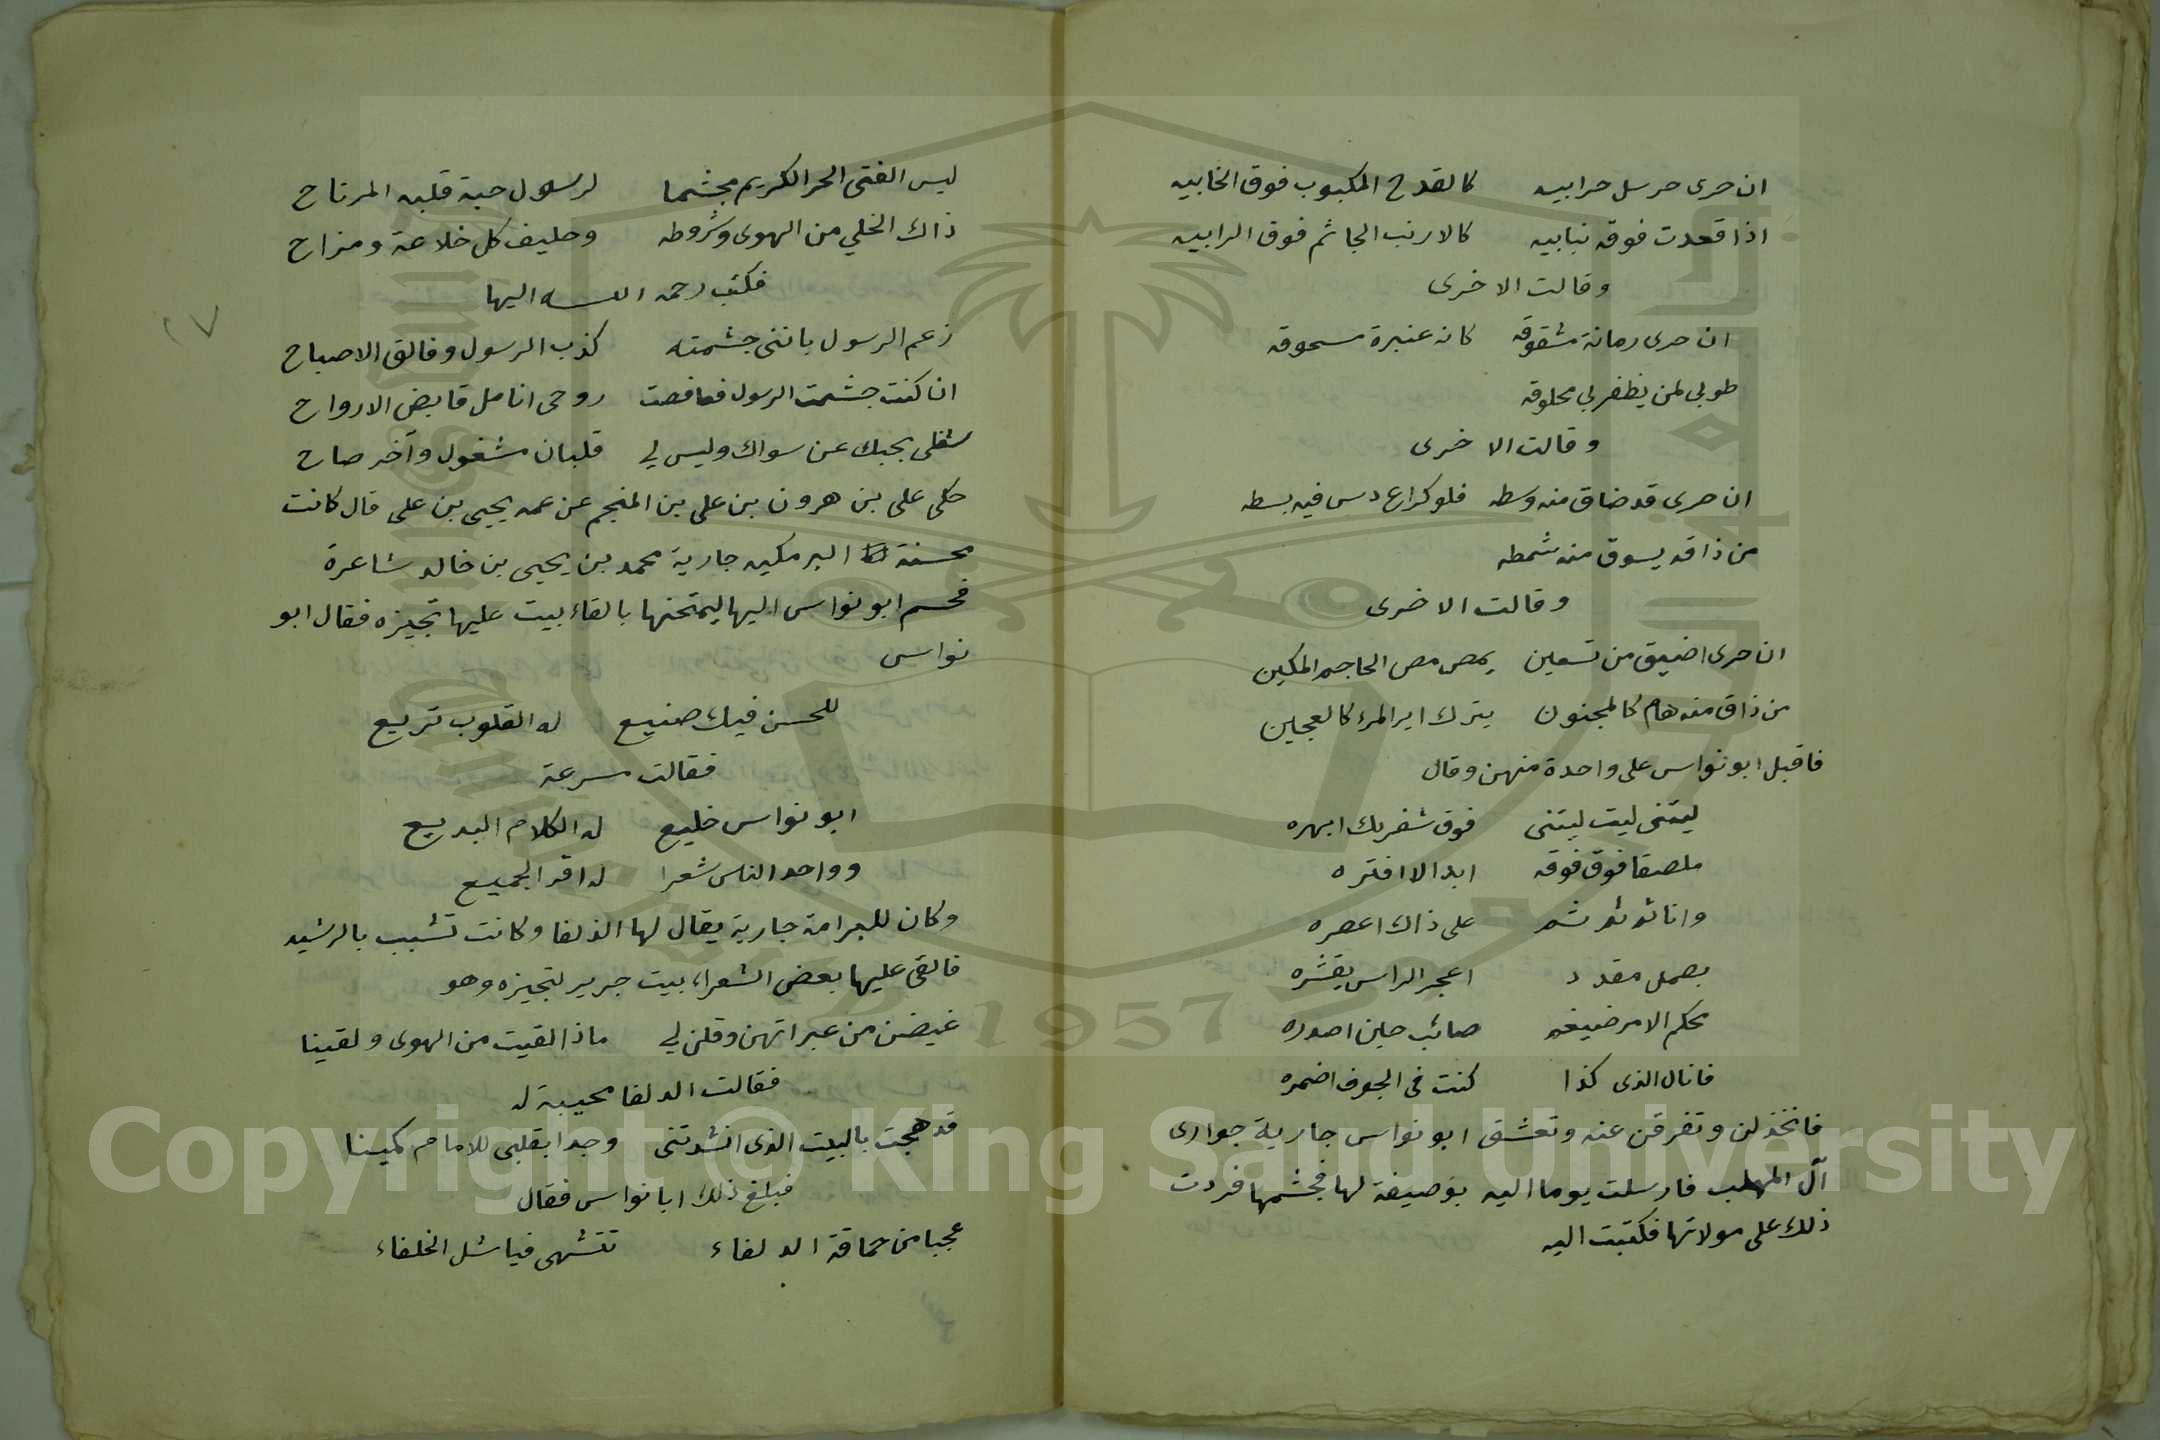 ان حرى حرسل حرابيه كالقدح المكبوب فوق الخابيه
اذا قعدت فوقه نبابيه كالارنب الجاثم فوق الرابيه
وقالت الاخرى
ان حرى رمانة مشقوقه كانه عنبرة مسحوقه
طوبى لمن يظفر بي محلوقه
وقالت الاخرى
ان حرى قد ضاق منه وسطه فلو كراع دس فيه بسطه
من ذاقه يسوق منه شمطه
وقالت الاخرى
ان حرى اضيق من تسعين يمص مص الحاجم المكين
من ذاق منه هام كالمجنون يترك اير المرء كالعجين
فاقبل ابو نواس على واحدة منهن وقال
ليتنى ليت ليتنى فوق شفريك ابهره
ملصقا فوق فوقه ابدا لا افتره
وانا ثم ثم ثم على ذاك اعصره
بصمل مقدد اعجر الراس يقشره
محكم الامر ضيغم صائب حين اصدره
فانال الذى كذا كنت فى الجوف اضمره
فانخذلن وتفرقن عنه وتعشق ابو نواس جارية جوارى
آل المهلب فارسلت يوما اليه بوصيفة لها فجشمها فردت
ذلك على مولاتها فكتبت اليه
ليس الفتى الحر الكريم مجشما لرسول حبة قلبه المرتاح
ذاك الخلي من الهوى وشروطه وحليف كل خلاعة ومزاح
فكتب رحمه الله اليها
زعم الرسول باننى جشمته كذب الرسول وفالق الاصباح
ان كنت جشمت الرسول فعافصت روحى انامل قابض الارواح
شغلى بحبك عن سواك وليس لي قلبان مشغول وآخر صاح
حكى على بن هرون بن على بن المنجم عن عمه يحيى بن على قال كانت
محسنة البرمكيه جارية محمد بن يحيى بن خالد شاعرة
فحسم ابو نواس اليها ليمتحنها بالقاء بيت عليها تجيزه فقال ابو
نواس
للحسن فيك صنيع له القلوب تريع
فقالت مسرعة
ابو نواس خليع له الكلام البديع
وواحد الناس شعرا له اقر الجميع
وكان للبرامة جارية يقال لها الذلفا وكانت تشبب بالرشيد
فالقى عليها بعض الشعراء بيت جرير لتجيزه وهو
غيضن من عبراتهن وقلن لي ماذا لقيت من الهوى ولقينا
فقالت الدلفا محيبة له
قد هجت بالبيت الذى انشدتنى وجدا بقلبى للامام كمينا
فبلغ ذلك ابا نواس فقال
عجبا من حماقة الدلفاء تتشهى فياشل الخلفاء
١٧
Copyright © King Saud University
1957